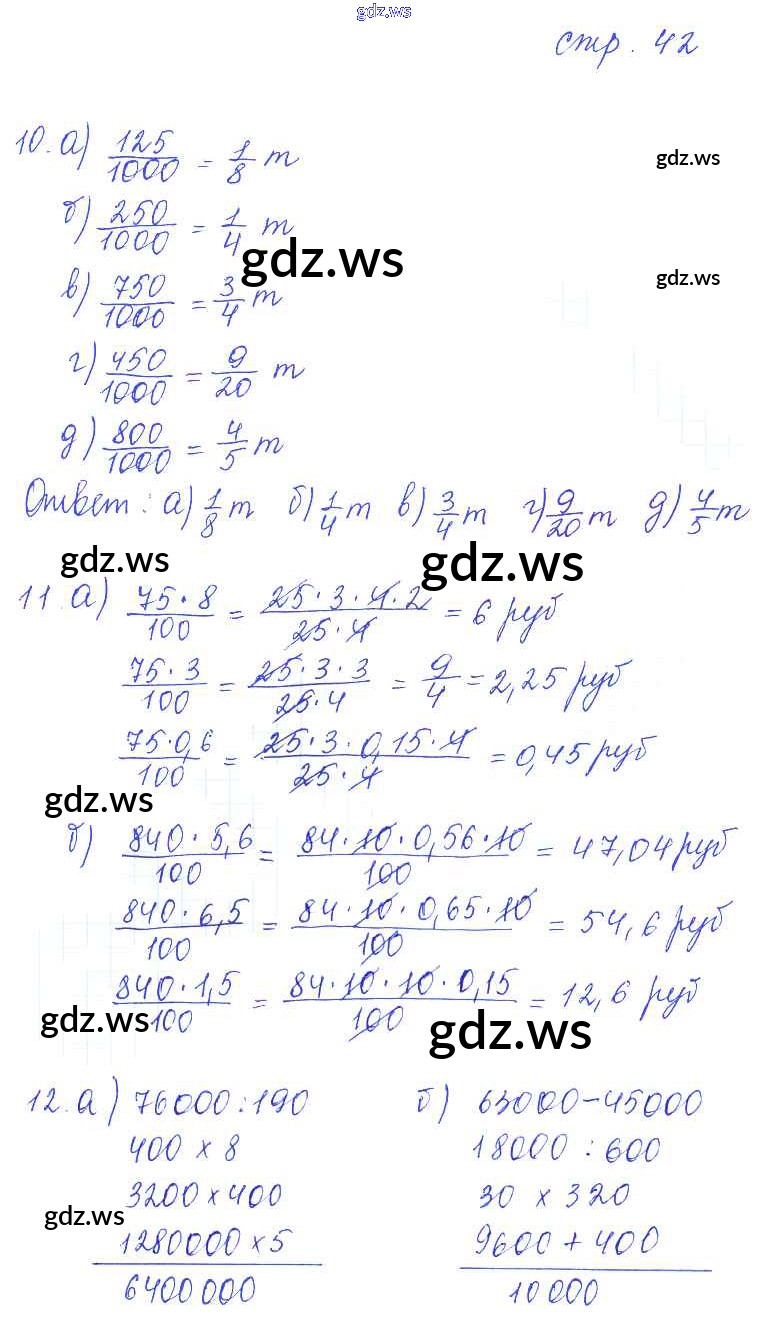 gdz.ws
стр. 42
10. а) 125/1000 = 1/8 т
gdz.ws
б) 250/1000 = 1/4 т
gdz.ws
gdz.ws
в) 750/1000 = 3/4 т
г) 450/1000 = 9/20 т
д) 800/1000 = 4/5 т
Ответ: а) 1/8 т б) 1/4 т в) 3/4 т г) 9/20 т д) 4/5 т
gdz.ws gdz.ws
11. а) 75·8/100 = 25·3·4·2/25·4 = 6 руб
75·3/100 = 25·3·3/25·4 = 9/4 = 2,25 руб
75·0,6/100 = 25·3·0,15·4/25·4 = 0,45 руб
gdz.ws
б) 840·5,6/100 = 84·10·0,56·10/100 = 47,04 руб
840·6,5/100 = 84·10·0,65·10/100 = 54,6 руб
840·1,5/100 = 84·10·10·0,15/100 = 12,6 руб
gdz.ws gdz.ws
12. а) 76000:190 б) 63000-45000
400 x 8 18000 : 600
3200 x 400 30 x 320
gdz.ws
1280000 x 5 9600 + 400
6400 000 10 000